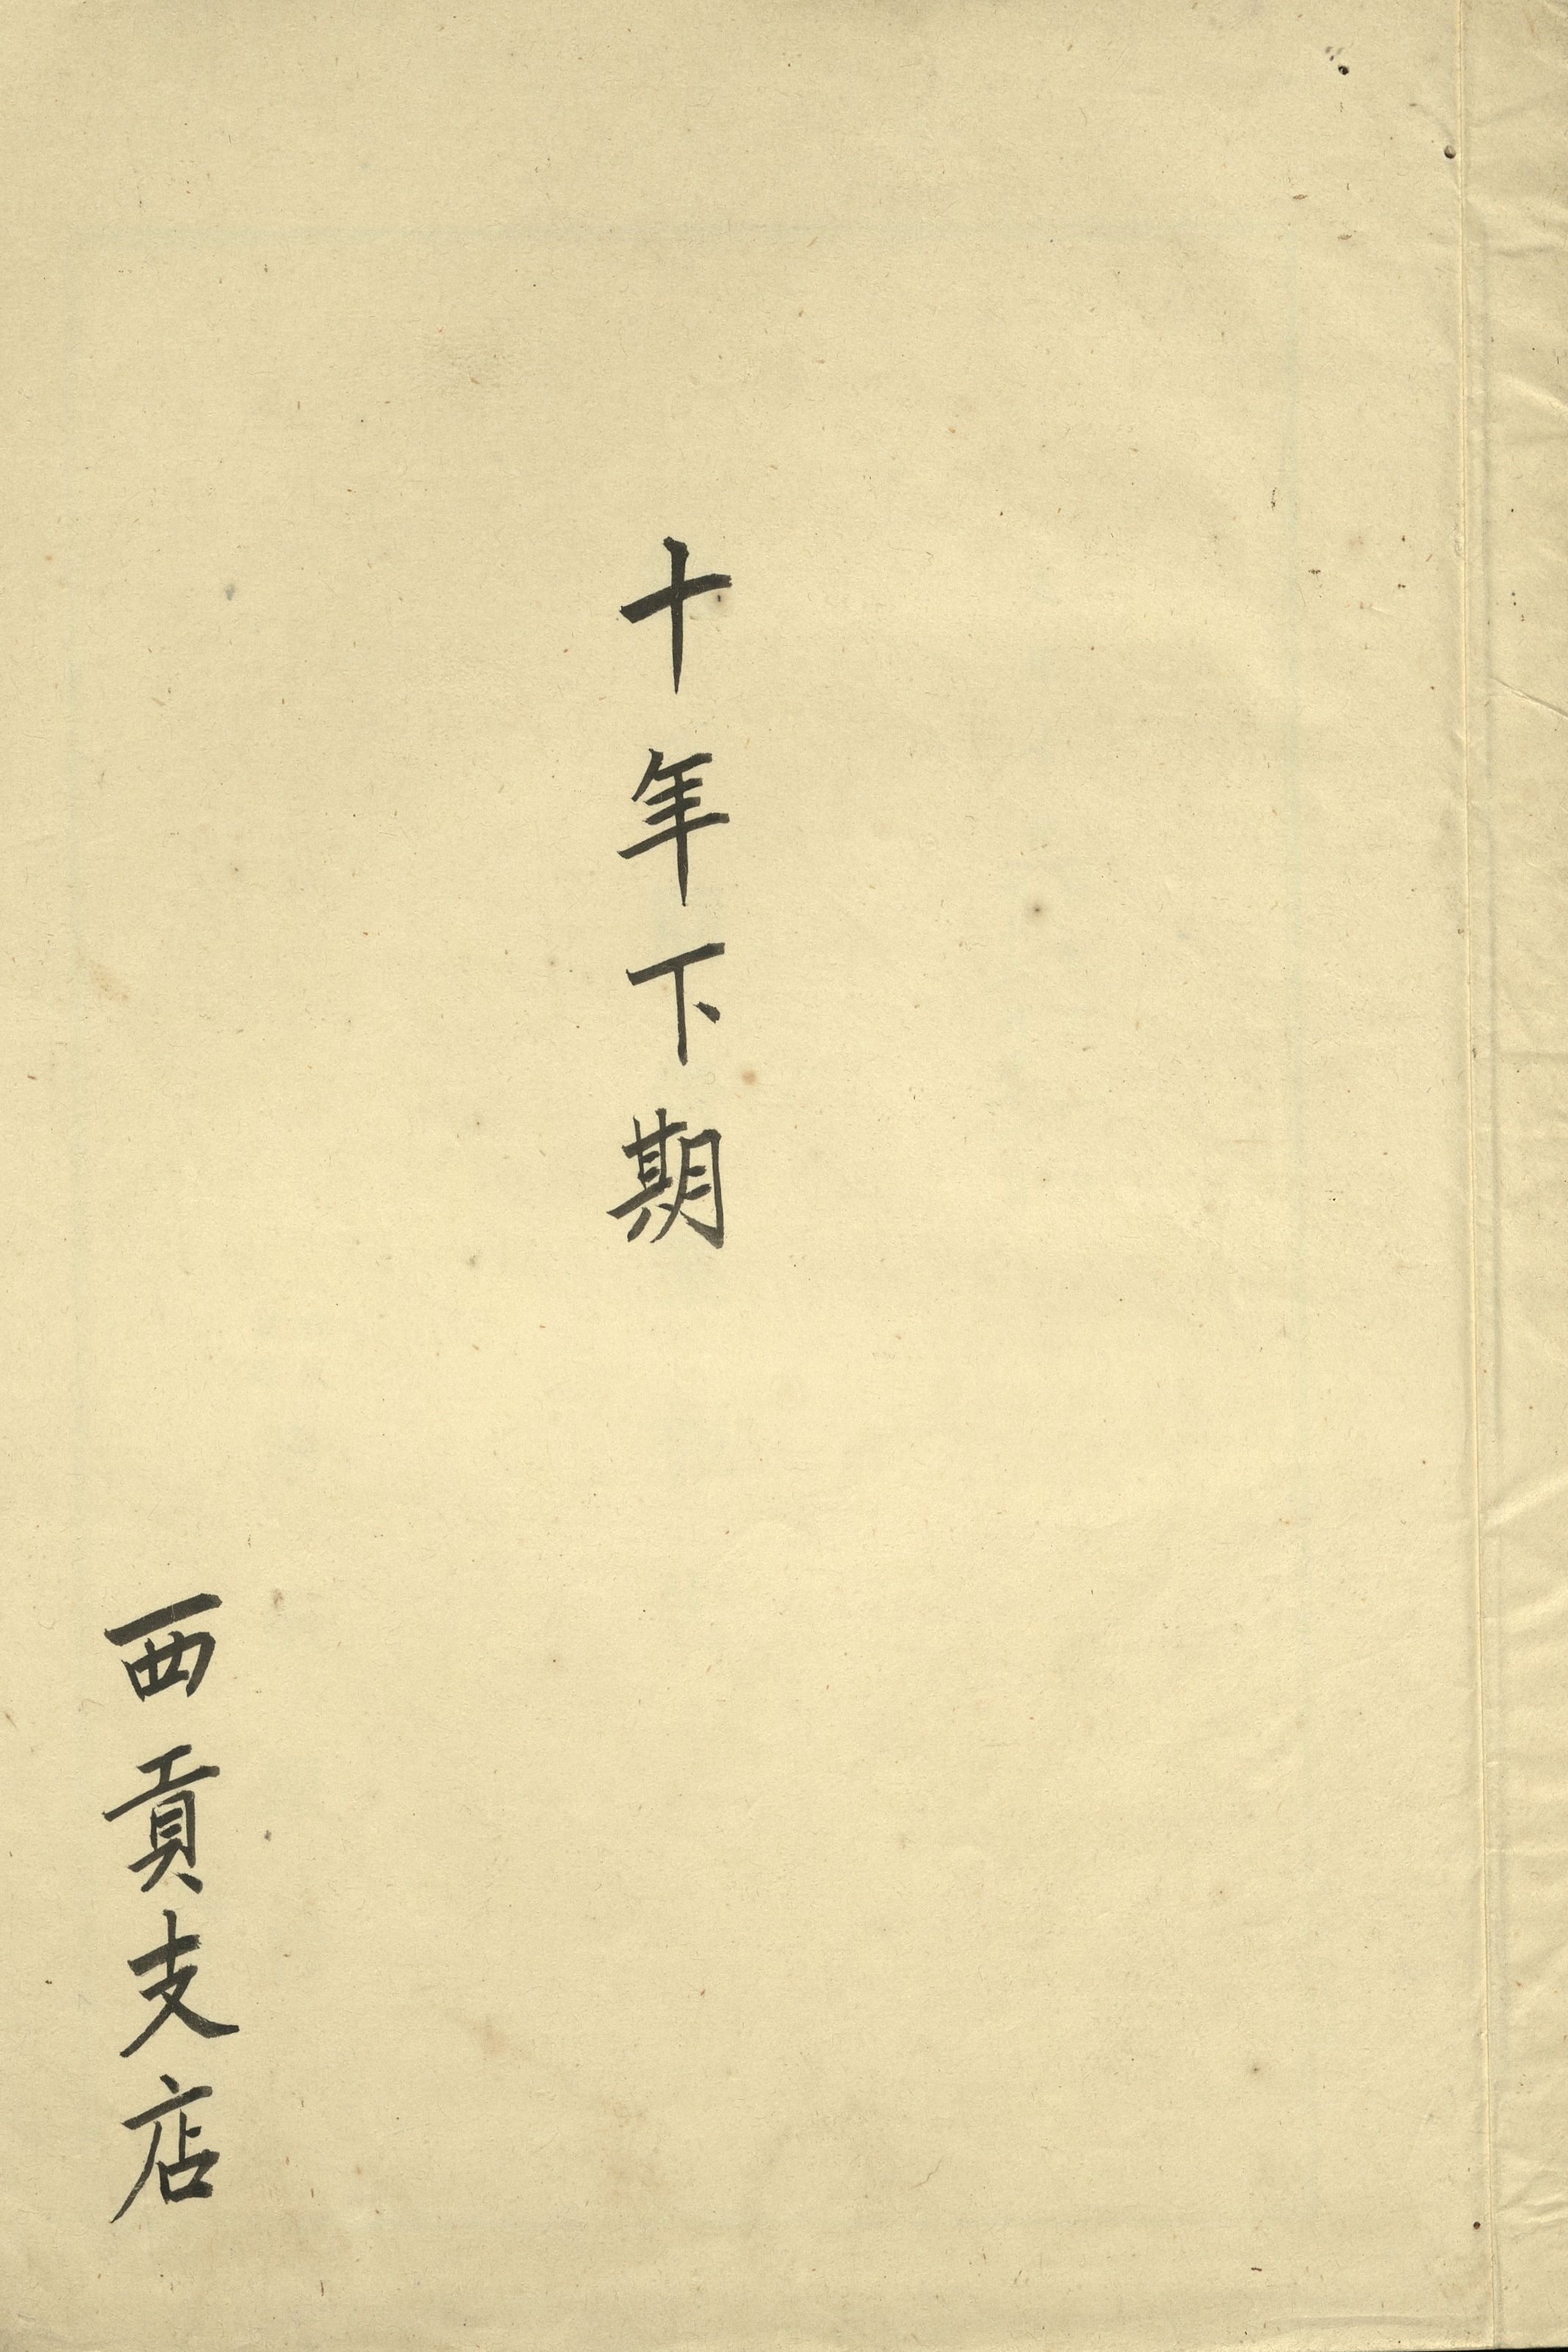 十年下期
西貢支店